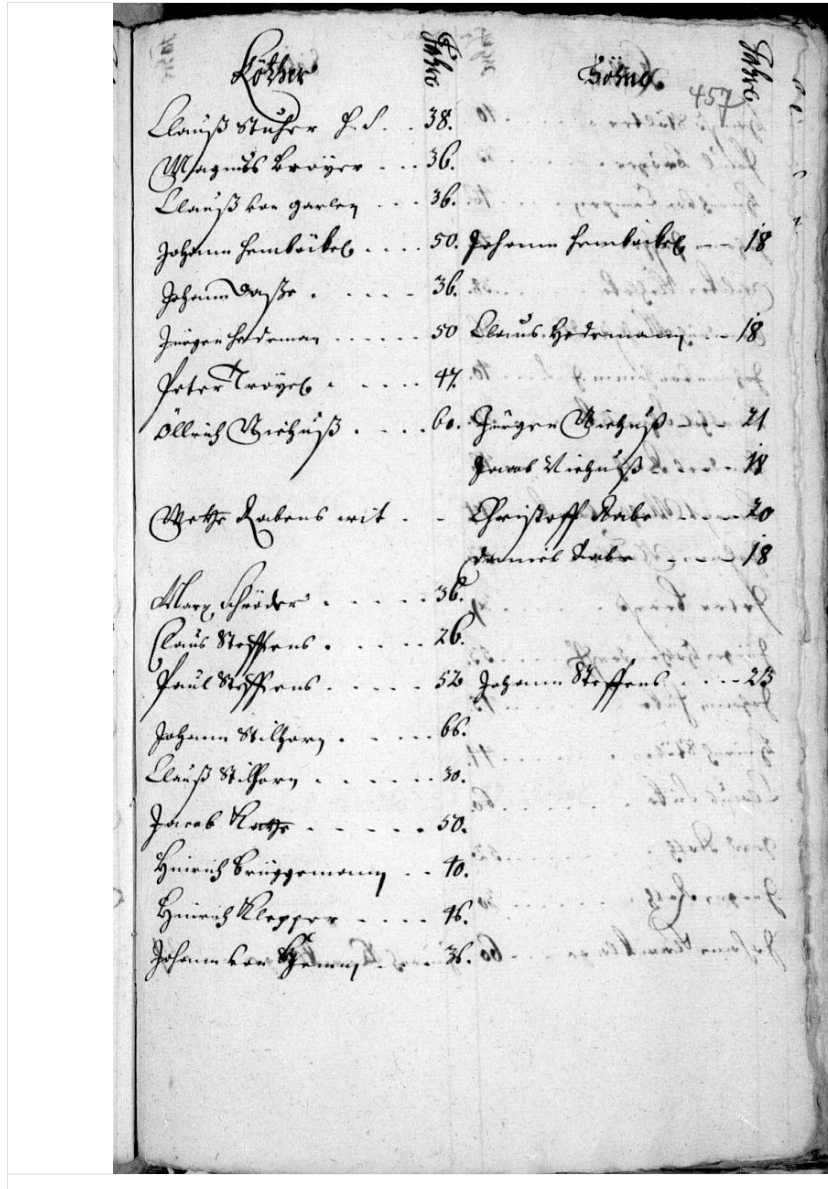 Köther Jahre Söhne Jahre
457
Clauß Stuhr H. S. . . 38.
Magnus Bröyer . . . 36.
Clauß von Garlen . . . 36.
Johann Hemböckel . . . . 50. Johann Hemböckel — — 18
Johann Daße . . . . . 36.
Jürgen Hedeman . . . . . . 50 Claus Hedemann . — — 18
Peter Tröyel . . . . . 47.
Öllrich Viehuß . . . . 60. Jürgen Viehuß . — — 21
Jacob Viehuß — — 18
Metje Rabens wit . . Christoff Rabe — — — 20
Daniel Rabe — — — 18
Marx Schröder . . . . . 36.
Claus Steffens . . . . . 26.
Paul Steffens . . . . . 52 Johann Steffens . . . — 23
Johann Stilhorn . . . . 66.
Clauß Stilhorn . . . . . 30.
Jacob Katje . . . . . 50.
Hinrich Brüggemann . . 40.
Hinrich Klepper . . . . 46.
Johann von . . . 36.